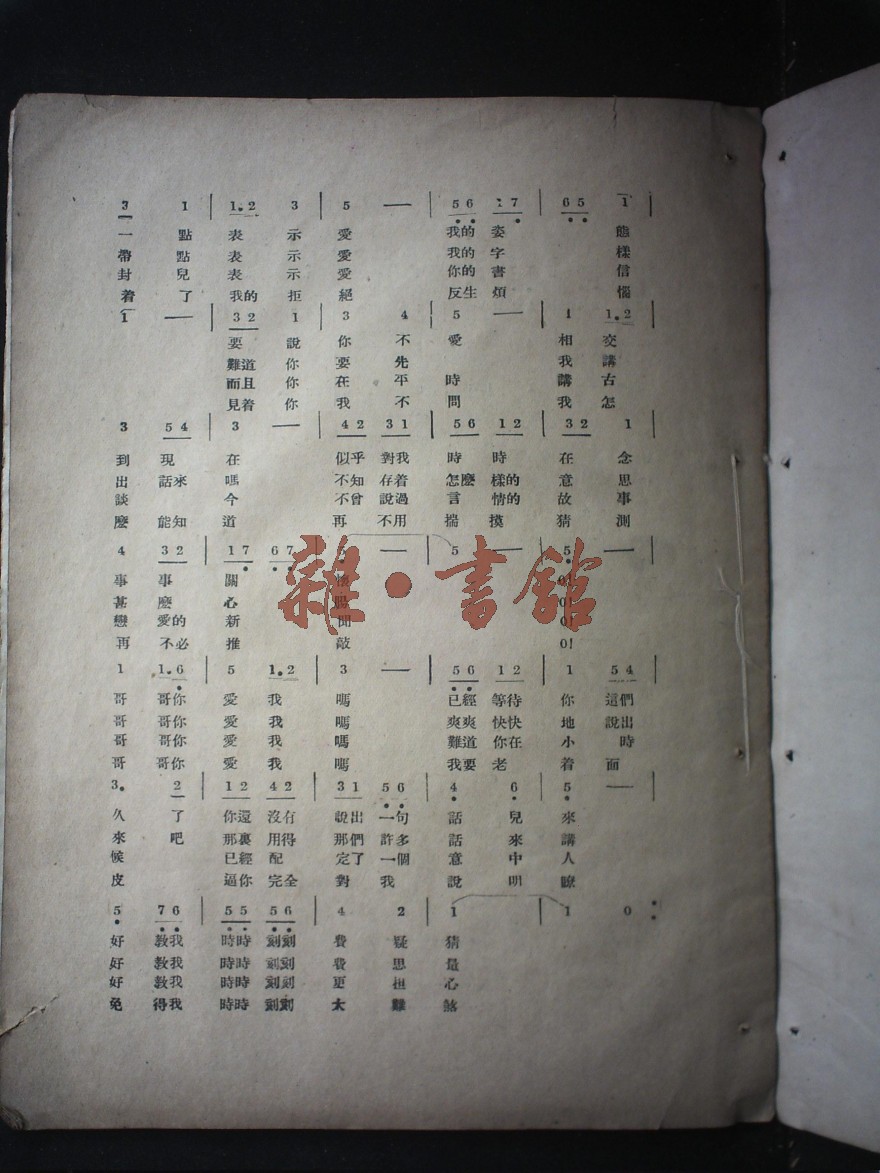 3 1 | 1.2 3 | 5 — | 5 6 1 7 | 6 5 1 |
一 點 表 示 愛 我的 姿 態
帶 點 表 示 愛 我的 字 樣
封 兒 表 示 愛 你的 書 信
着 了 我的 拒 絕 反生 煩 惱
1 — | 3 2 1 | 3 4 | 5 — | 1 1.2 |
要 說 你 不 愛 相 交
難道 你 要 先 我 講
而且 你 在 平 時 講 古
見着 你 我 不 問 我 怎
3 5 4 | 3 — | 4 2 3 1 | 5 6 1 2 | 3 2 1 |
到 現 在 似乎 對我 時 時 在 念
出 話來 嗎 不知 存着 怎麽 樣的 意 思
談 今 不曾 說過 言 情的 故 事
麽 能知 道 再 不用 揣 摸 猜 測
4 3 2 | 1 7 6 7 | 5 — | 5 — | 5 — |
事 事 關 O!
甚 麽 心 O!
戀 愛的 新 聞 O!
再 不必 推 敲 O!
雜·書舘
1 1.6 | 5 1.2 | 3 — | 5 6 1 2 | 1 5 4 |
哥 哥你 愛 我 嗎 已經 等待 你 這們
哥 哥你 愛 我 嗎 爽爽 快快 地 說出
哥 哥你 愛 我 嗎 難道 你在 小 時
哥 哥你 愛 我 嗎 我要 老 着 面
3. 2 | 1 2 4 2 | 3 1 5 6 | 4 6 | 5 — |
久 了 你還 沒有 說出 一句 話 兒 來
來 吧 那裏 用得 那們 許多 話 來 講
候 已經 配 定了 一個 意 中 人
皮 逼你 完全 對 我 說 明 瞭
5 7 6 | 5 5 5 6 | 4 2 | 1 | 1 0 :
好 敎我 時時 刻刻 費 疑 猜
好 敎我 時時 刻刻 費 思 量
好 敎我 時時 刻刻 更 担 心
免 得我 時時 刻刻 太 難 煞